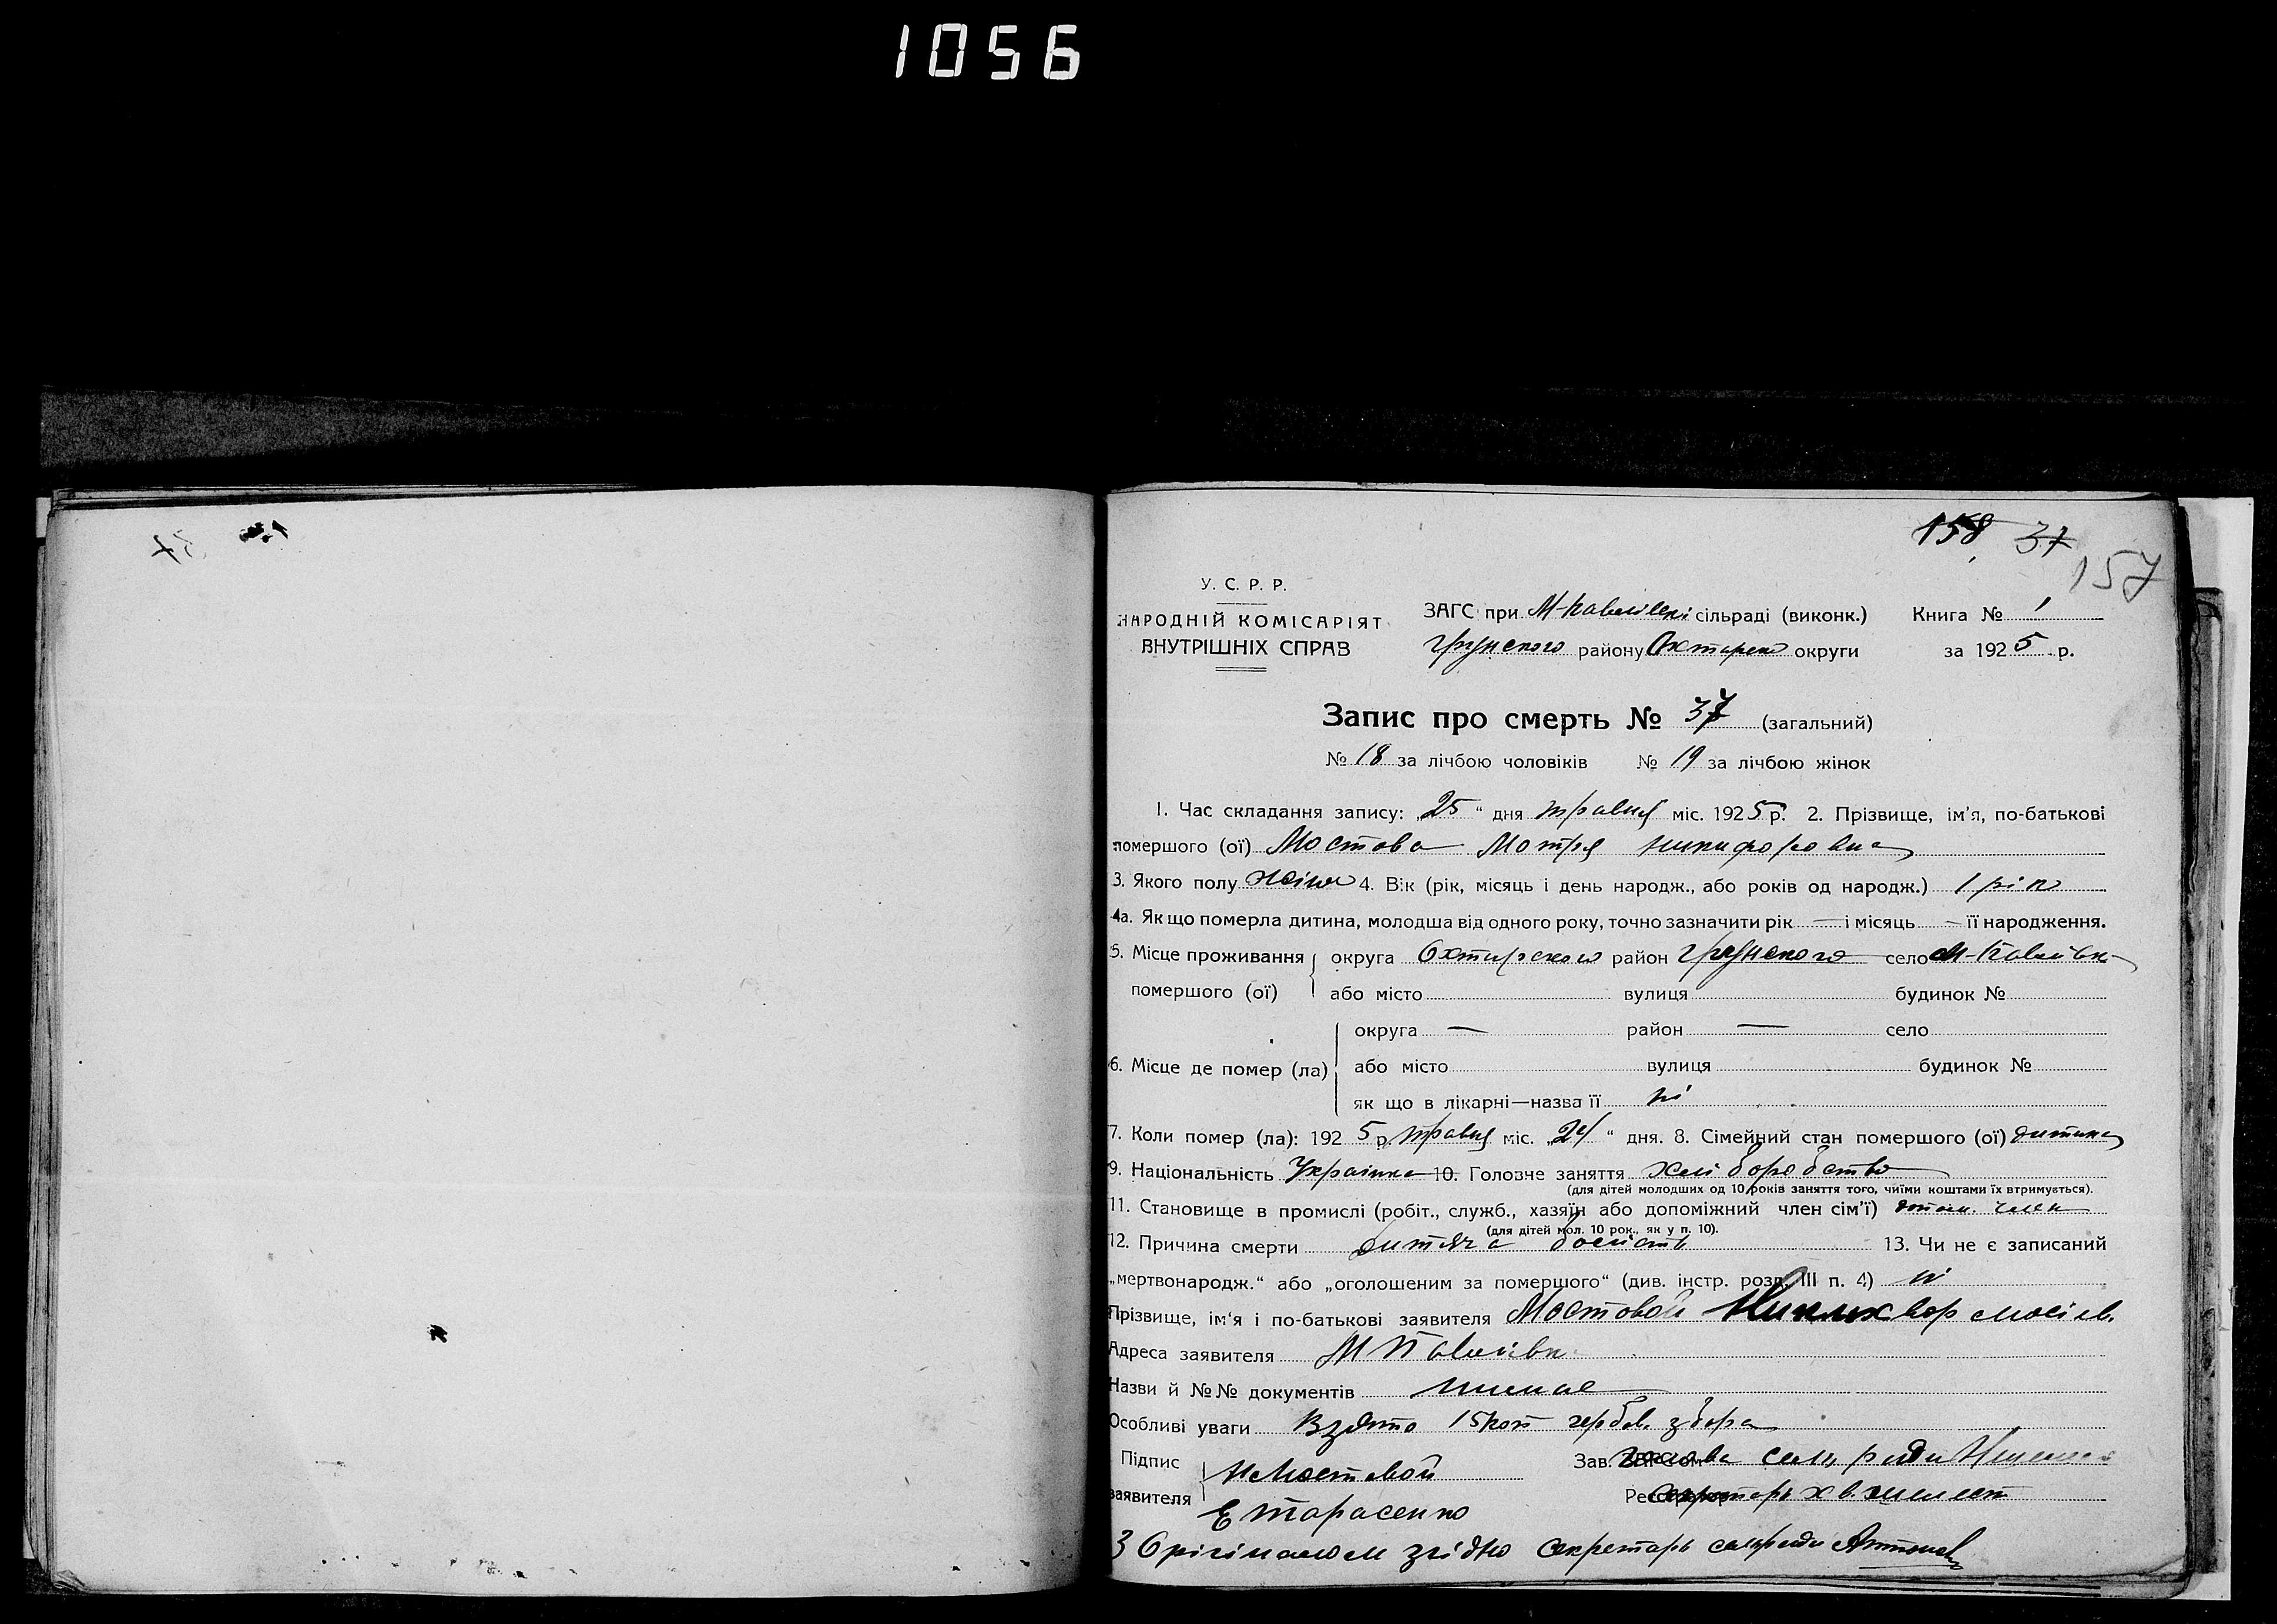 1056
158 37
157
У. С. Р. Р.
НАРОДНІЙ КОМІСАРІЯТ
ВНУТРІШНІХ СПРАВ
ЗАГС при М-Павлівскі сільраді (виконк.) Книга № 1
Грунского району Охтирско округи за 1925 р.
Запис про смерть № 37 (загальний)
№ 18 за лічбою чоловіків № 19 за лічбою жінок
1. Час складання запису: „25“ дня травня міс. 1925 р. 2. Прізвище, ім'я, по-батькові
помершого (ої) Мостова Мотря никифоровна
3. Якого полу жіно 4. Вік (рік, місяць і день народж., або років од народж.) 1 рік
4а. Як що померла дитина, молодша від одного року, точно зазначити рік — і місяць — її народження.
5. Місце проживання округа Охтирского район Грунского село М-Павлівк
помершого (ої) або місто вулиця будинок №
округа — район — село
6. Місце де помер (ла) або місто вулиця будинок №
як що в лікарні—назва її ні
7. Коли помер (ла): 1925 р. травня міс. „24“ дня. 8. Сімейний стан помершого (ої) дитина
9. Національність Українка 10. Головне заняття хліборобство
(для дітей молодших од 10 років заняття того, чиїми коштами їх втримується).
11. Становище в промислі (робіт., служб., хазяїн або допоміжний член сім'ї) член
(для дітей мол. 10 рок., як у п. 10).
12. Причина смерти дитяча болість 13. Чи не є записаний
„мертвонародж.“ або „оголошеним за помершого“ (див. інстр. розд. III п. 4) ні
Прізвище, ім'я і по-батькові заявителя Мостовой
Адреса заявителя М Павлівк
Назви й №№ документів немае
Особливі уваги Взято 15 коп гербов. збора
Підпис Н Мостовой Зав. ЗАГСом голова сель ради
заявителя Е Тарасенко секретарь
З Орігіналом згідно секретарь сельради